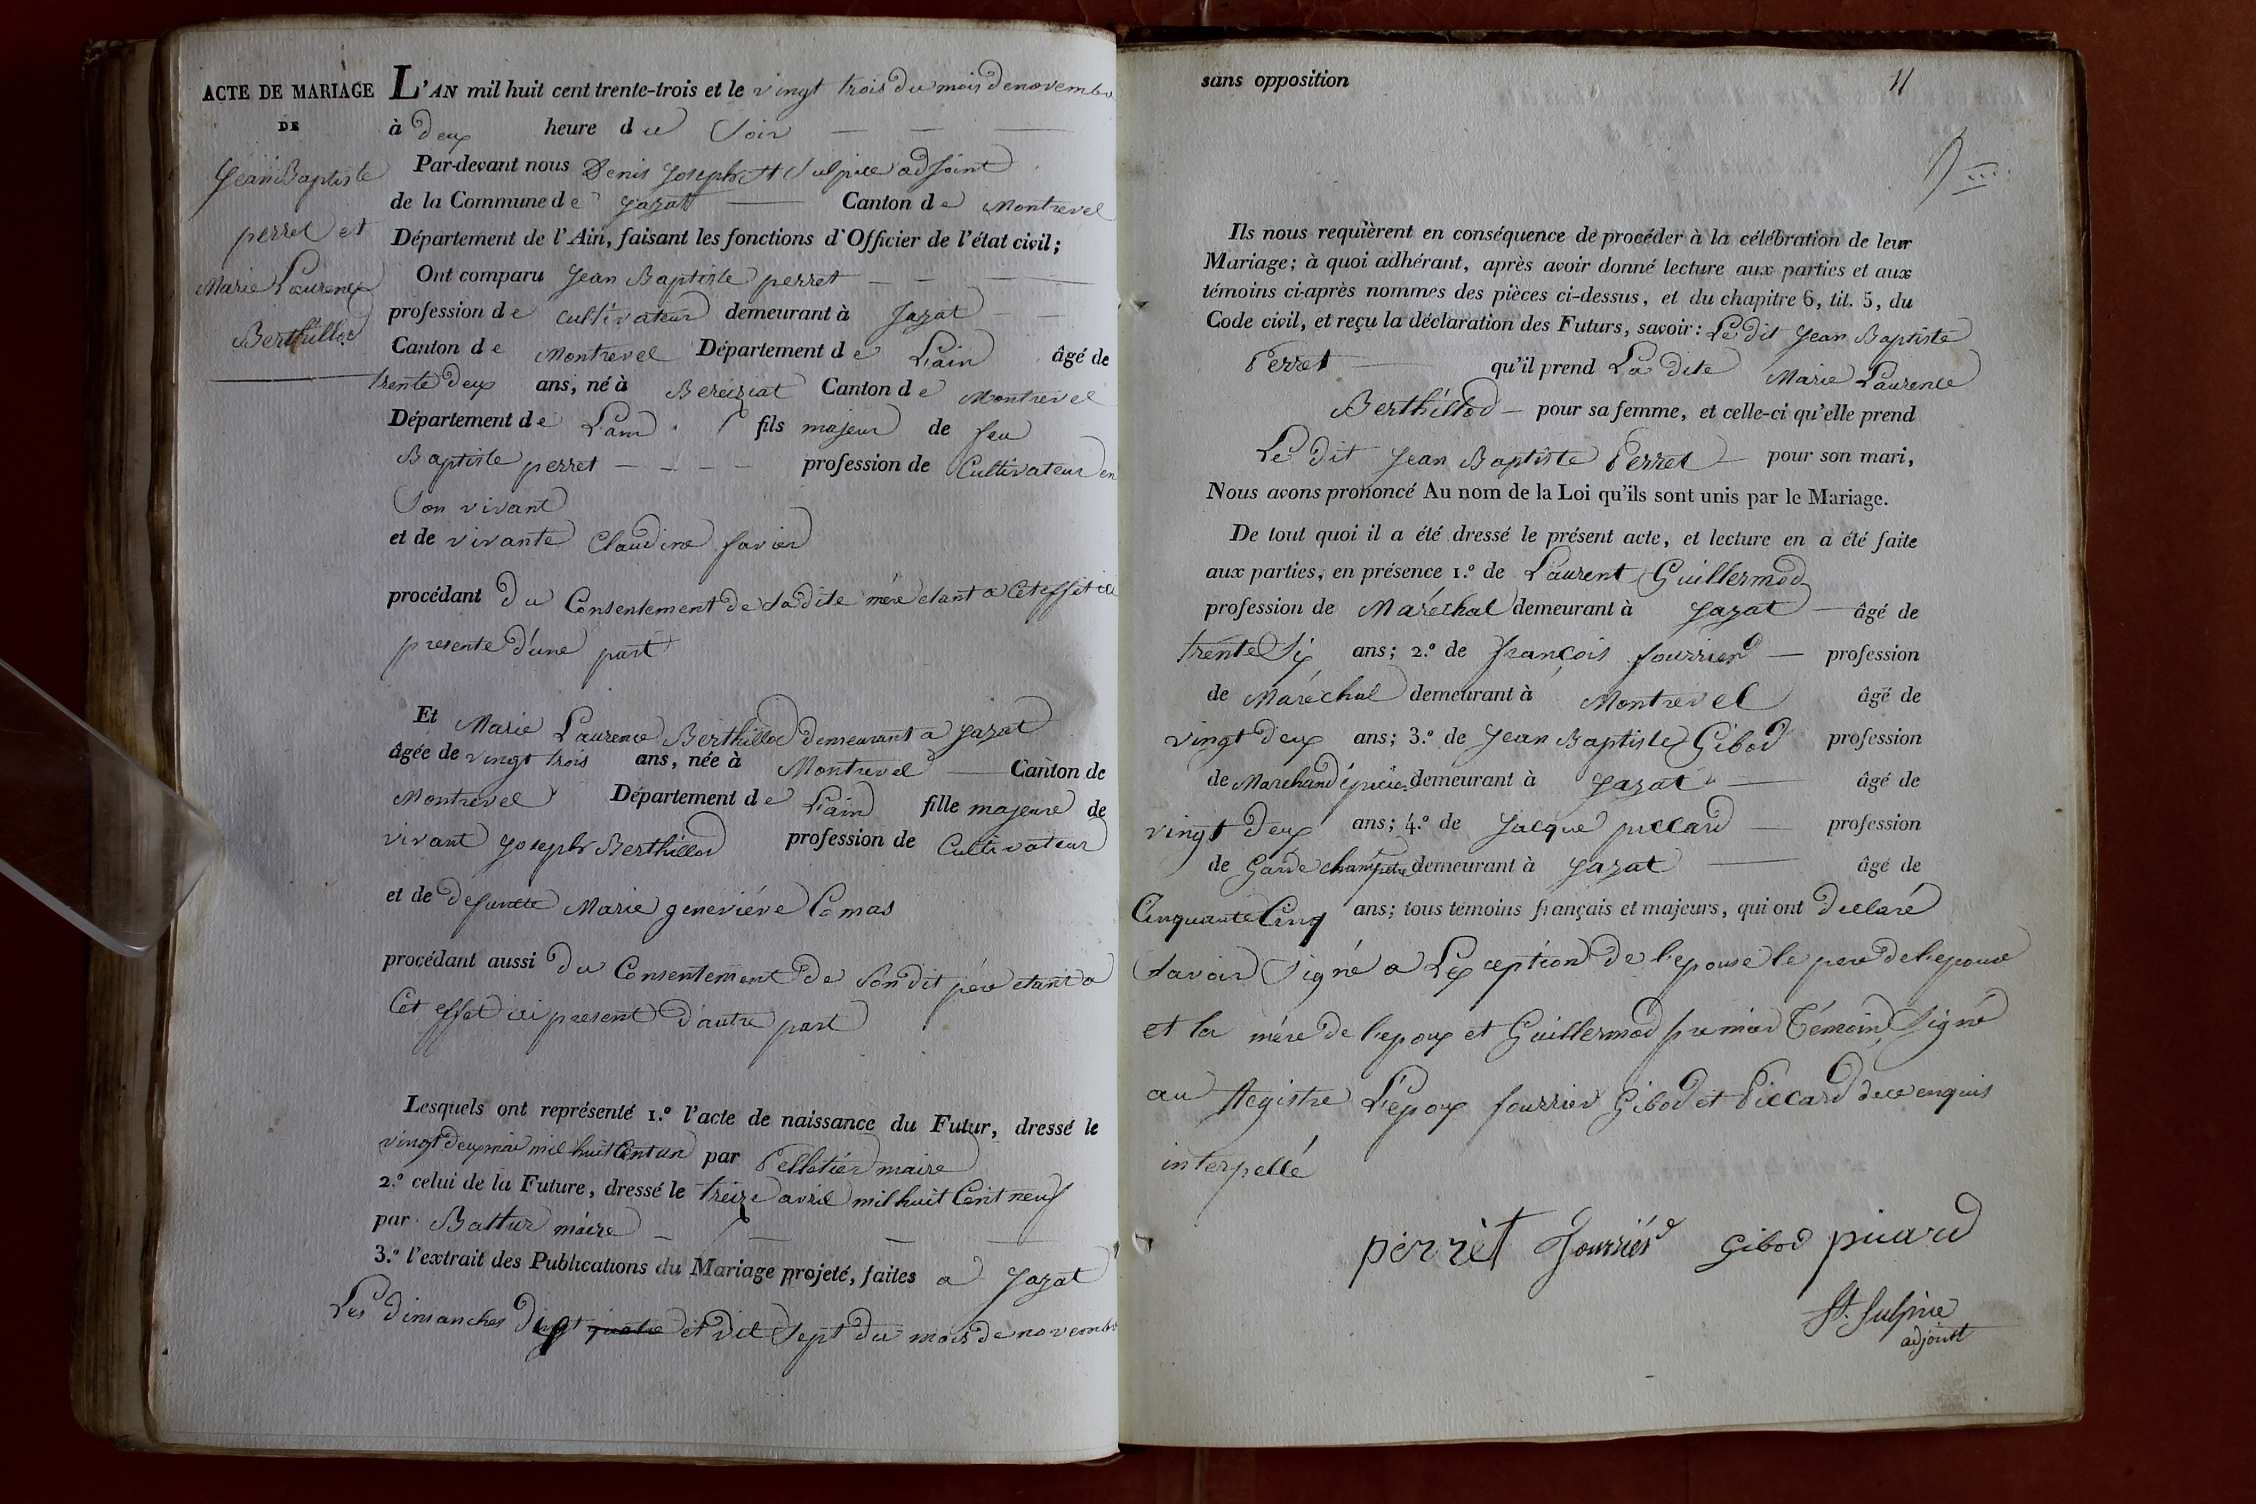 ACTE DE MARIAGE
DE
Jean Baptiste
perret et
Marie Laurence
Berthillod
L'AN mil huit cent trente-trois et le vingt trois du mois de novembre
à deux heure du Soir
Par-devant nous Denis Joseph St Sulpice adjoint
de la Commune de Jayat Canton de Montrevel
Département de l'Ain, faisant les fonctions d'Officier de l'état civil;
Ont comparu Jean Baptiste perret
profession de cultivateur demeurant à Jayat
Canton de Montrevel Département de L'ain âgé de
trente deux ans, né à Bereiziat Canton de Montrevel
Département de L'ain fils majeur de feu
Baptiste perret profession de Cultivateur en
Son vivant
et de vivante Claudine favier
procédant du Consentement de sa dite mère etant a Cet effet ici
presente d'une part
Et Marie Laurence Berthillod demeurant a Jayat
âgée de vingt trois ans, née à Montrevel Canton de
Montrevel Département de L'ain fille majeure de
vivant Joseph Berthillod profession de Cultivateur
et de defunte Marie geneviéve Comas
procédant aussi du Consentement de Son dit père etant a
Cet effet ici present d'autre part
Lesquels ont représenté 1.º l'acte de naissance du Futur, dressé le
vingt deux mai mil huit Cent un par Pelletier maire
2.º celui de la Future, dressé le treize avril mil huit Cent neuf
par Battur maire
3.º l'extrait des Publications du Mariage projeté, faites a Jayat
Les dimanches dix et dix Sept du mois de novembre
sans opposition
11
Ils nous requièrent en conséquence de procéder à la célébration de leur
Mariage; à quoi adhérant, après avoir donné lecture aux parties et aux
témoins ci-après nommés des pièces ci-dessus, et du chapitre 6, tit. 5, du
Code civil, et reçu la déclaration des Futurs, savoir: Le dit Jean Baptiste
Perret qu'il prend La dite Marie Laurence
Berthillod pour sa femme, et celle-ci qu'elle prend
Le dit Jean Baptiste Perret pour son mari,
Nous avons prononcé Au nom de la Loi qu'ils sont unis par le Mariage.
De tout quoi il a été dressé le présent acte, et lecture en a été faite
aux parties, en présence 1.º de Laurent Guillermod
profession de Maréchal demeurant à Jayat âgé de
trente Six ans; 2.º de françois fourrier profession
de Maréchal demeurant à Montrevel âgé de
vingt deux ans; 3.º de Jean Baptiste Gibod profession
de Marchand épicier demeurant à Jayat âgé de
vingt deux ans; 4.º de Jacque piccard profession
de Garde champetre demeurant à Jayat âgé de
Cinquante Cinq ans; tous témoins français et majeurs, qui ont déclaré
Savoir Signé a L'exception de l'epouse le pere de l'epouse
et la mère de l'epoux et Guillermod premier Témoin Signé
au Registre L'époux fourrier Gibod et Piccard de ce enquis
interpellé
perrèt fourrier Gibod picard
St. Sulpice
adjoint